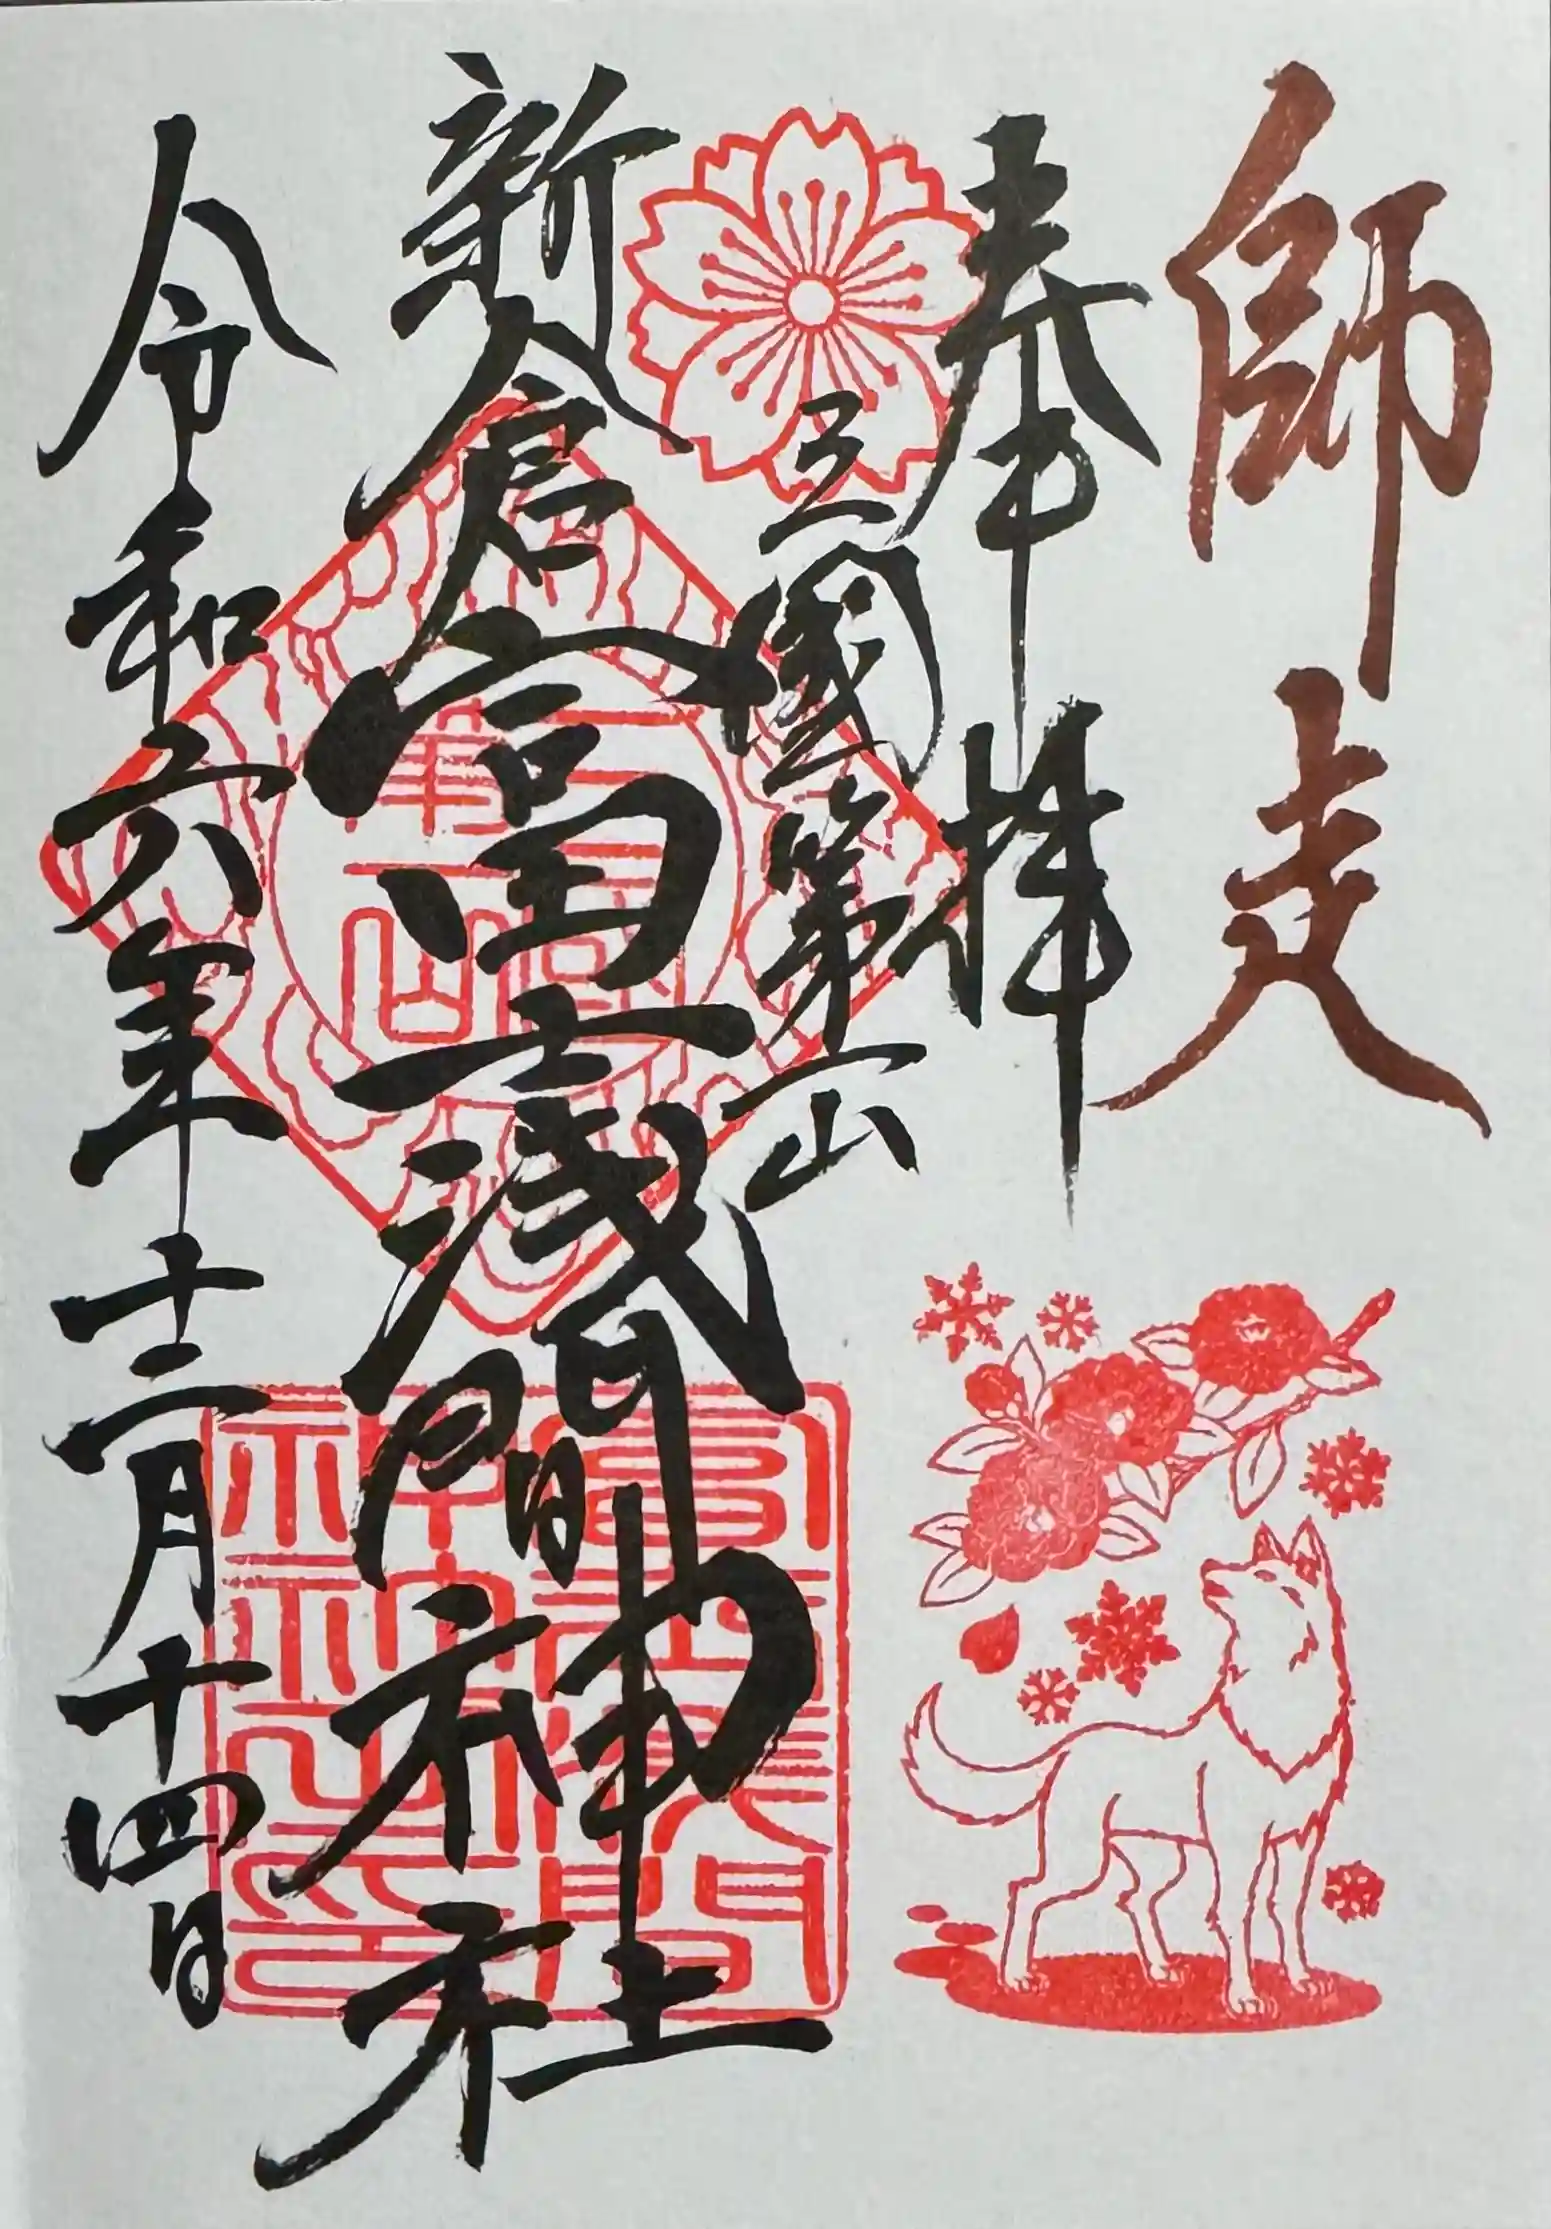 師走
奉拝
三國第一山
新倉富士浅間神社
令和六年十二月十四日
三國第一山